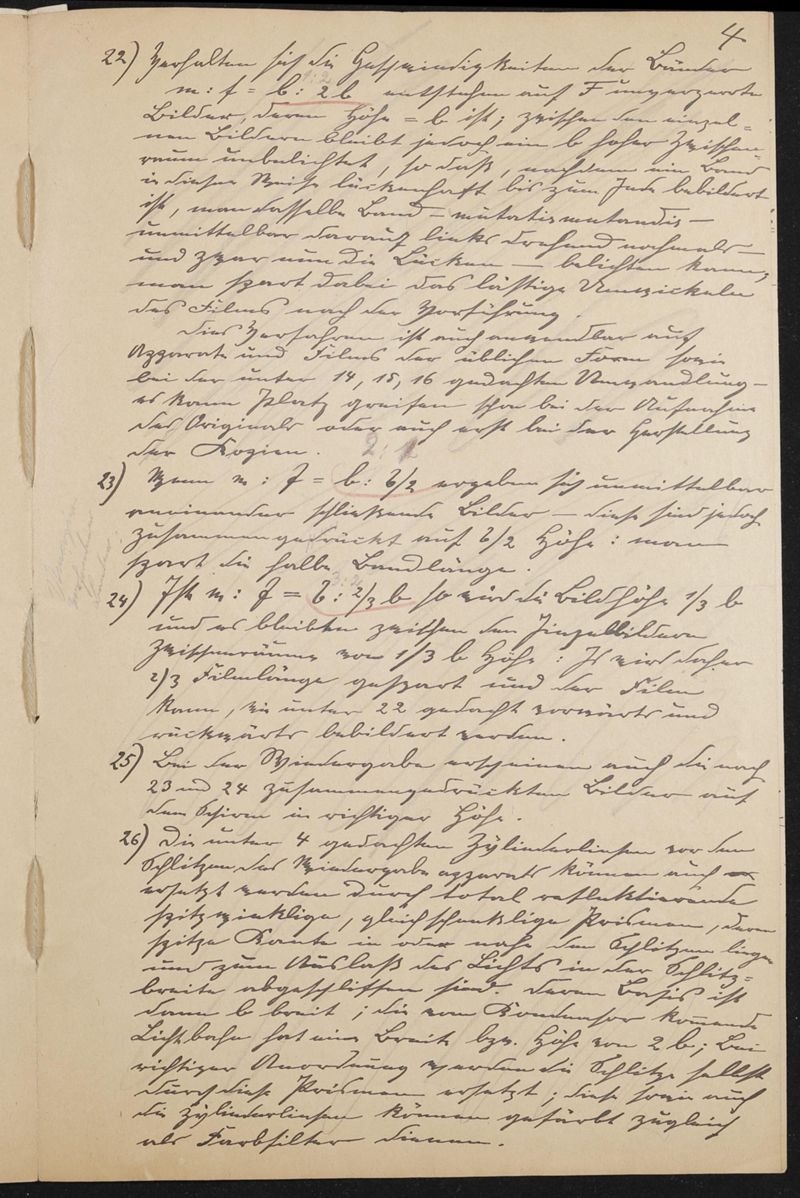 4
22) Verhalten sich die Geschwindigkeiten der Bänder
1:2
m : f = b : 2b entstehen auf F unverzerrte
Bilder, deren Höhe = b ist; zwischen den einzel=
nen Bildern bleibt jedoch ein b hoher Zwischen=
raum unbelichtet, so daß, nachdem ein Band
in dieser Weise lückenhaft bis zum Ende bebildert
ist, man dasselbe Band – mutatis mutandis –
unmittelbar darauf links drehend nochmals –
und zwar nun die Lücken – belichten kann;
man spart dabei das lästige Umwickeln
des Films nach der Vorführung.
Dies Verfahren ist auch anwendbar auf
Apparate und Films der üblichen Form sowie
bei der unter 14, 15, 16 gedachten Umwandlung –
es kann Platz greifen schon bei der Aufnahme
des Originals oder auch erst bei der Herstellung
der Kopien.
2:1
23) Wenn m : f = b : b/2 ergeben sich unmittelbar
aneinander schließende Bilder – diese sind jedoch
zusammengedrückt auf b/2 Höhe: man
spart die halbe Bandlänge.
3:2
24) Ist m : f = b : 2/3 b so wird die Bildhöhe 1/3 b
und es bleiben zwischen den Einzelbildern
Zwischenräume von 1/3 b Höhe: Es wird daher
2/3 Filmlänge gespart und der Film
kann, wie unter 22 gedacht vorwärts und
rückwärts bebildert werden.
25) Bei der Wiedergabe erscheinen auch die nach
23 und 24 zusammengedrückten Bilder auf
dem Schirm in richtiger Höhe.
26) Die unter 4 gedachten Zylinderlinsen vor den
Schlitzen des Wiedergabeapparats können auch
ersetzt werden durch total reflektierende
spitzwinklige, gleichschenklige Prismen, deren
spitze Kante in oder nahe den Schlitzen liegen
und zum Auslaß des Lichts in der Schlitz=
breite abgeschliffen sind. Deren Basis ist
dann b breit; die vom Kondensor kommende
Lichtbahn hat eine Breite bzw. Höhe von 2b; Bei
richtiger Anordnung werden die Schlitze selbst
durch diese Prismen ersetzt; diese sowie auch
die Zylinderlinsen können gefärbt zugleich
als Farbfilter dienen.